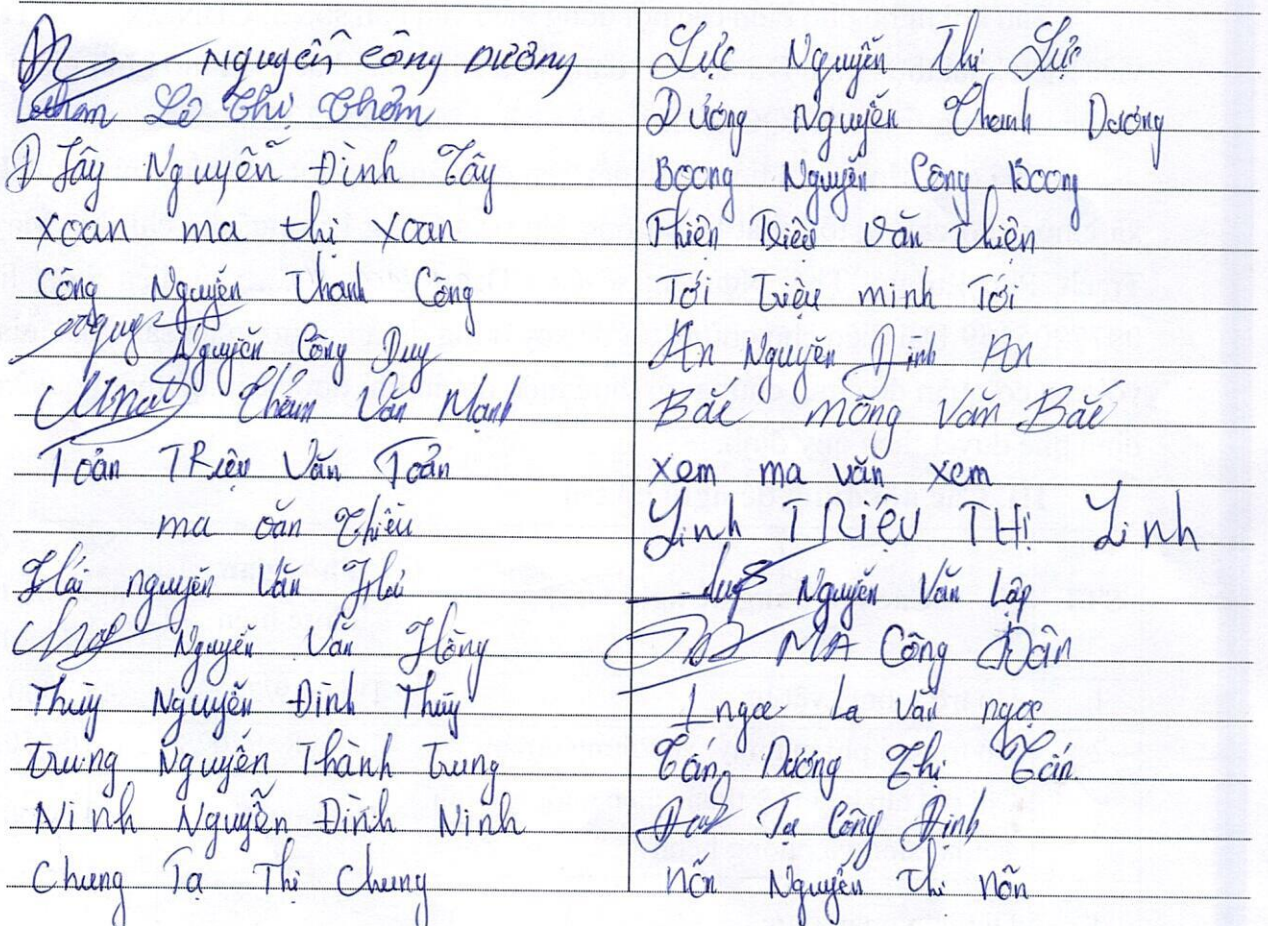 Nguyễn Công Dương
Lê Thị Thơm
Tây Nguyễn Đình Tây
Xoan ma thị Xoan
Công Nguyễn Thanh Công
Nguyễn Công Duy
Văn Mạnh
Toản TRiệu Văn Toản
ma văn Thiều
Hải nguyễn Văn Hải
Nguyễn Văn Hồng
Thùy Nguyễn Đình Thùy
Trung Nguyễn Thành Trung
Ninh Nguyễn Đình Ninh
Chung Tạ Thị Chung
Lực Nguyễn Thị Lực
Dương Nguyễn Thanh Dương
Boong Nguyễn Công Boong
Thiện Triệu Văn Thiện
Tới Triệu minh Tới
An Nguyễn Đình An
Bắc mông Văn Bắc
xem ma văn xem
Linh TRIỆU THỊ Linh
Nguyễn Văn Lập
MA Công Dân
ngọc La Văn ngọc
Tán Dương Thị Tán
Tạ Công Định
nõn Nguyễn thị nõn